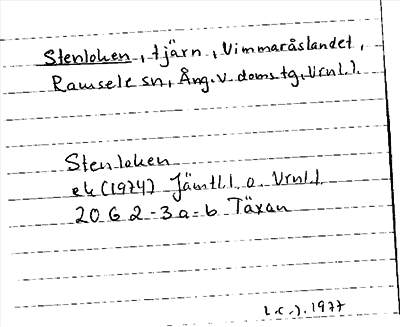 Stenloken, tjärn, Vimmaråslandet,
Ramsele sn, Ång. v. doms.tg, Vrnl.l.
Stenloken
ek (1974) Jämtl.l. o. Vrnl.l
20 G 2-3 a-b Täxan
L.C.J. 1977